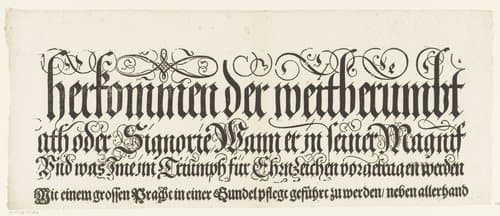 herkommen der weitberumbt
ath oder Signorie Wann er in seiner Magnif
Vnd was Jme im Triumph für Ehrnzeichen vorgetragen werden
Mit einem grossen Pracht in einer Gundel pflegt geführt zu werden / neben allerhand